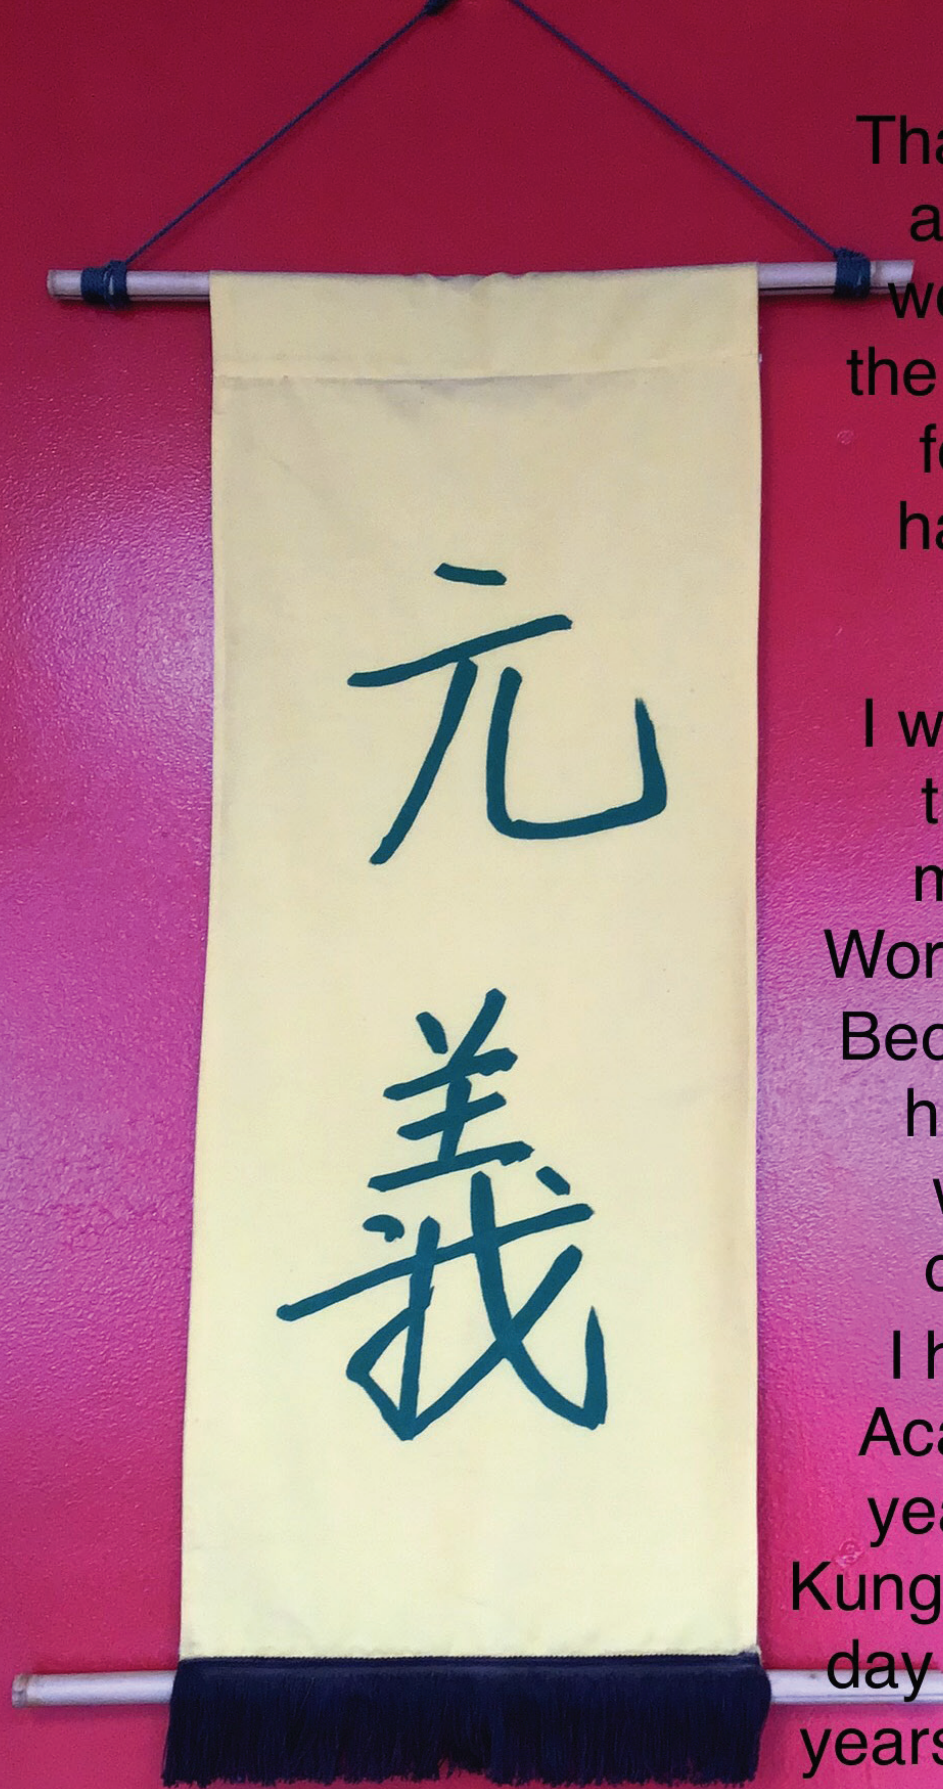 元
義
Tha
a
the
ha
I w
t
Wor
Bec
h
I h
Aca
yea
Kung
day
years